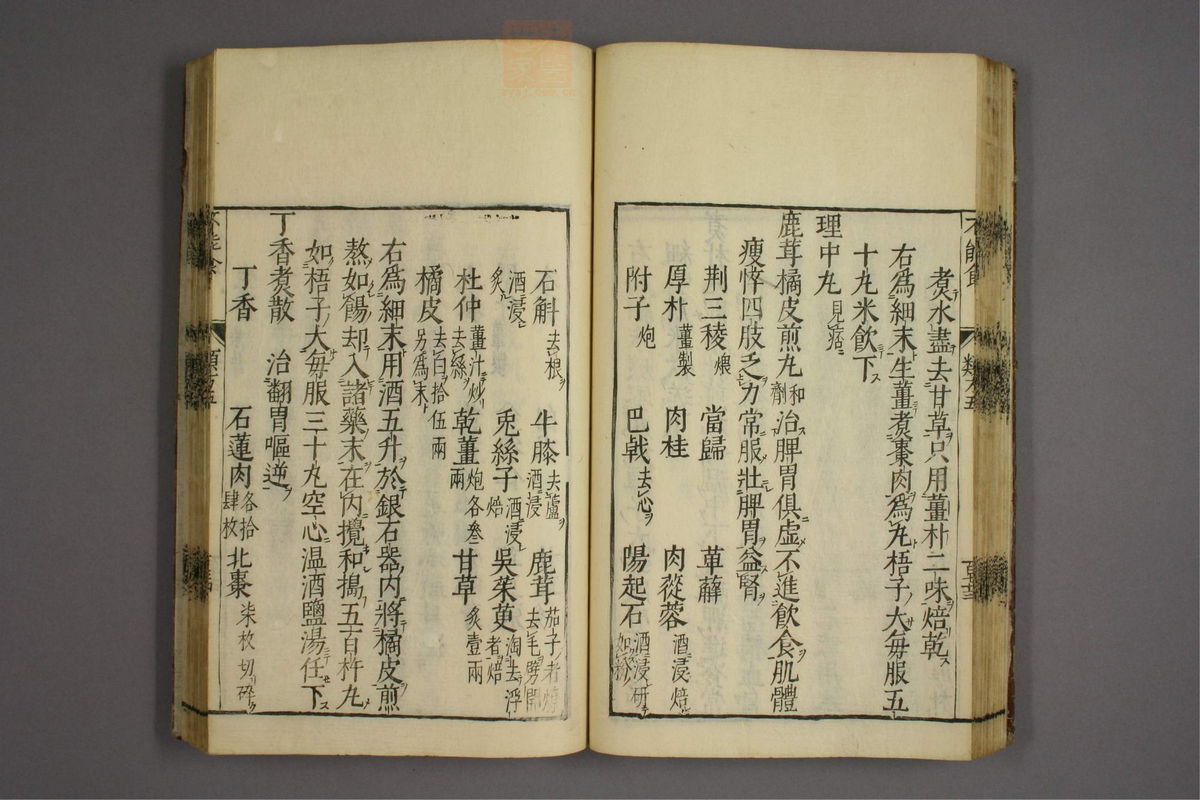 煑水盡去甘草只用薑朴二味焙乾
右爲細末生薑煑棗肉爲丸梧子大毎服五
十丸米飲下
理中丸見痞
鹿茸橘皮煎丸和劑治脾胃俱虚不進飲食肌體
瘦悴四肢乏力常服壮脾胃益腎
荆三稜煨 當歸 萆薢
厚朴薑製 肉桂 肉蓯蓉酒浸焙
附子炮 巴戟去心 陽起石酒浸研如粉
石斛去根酒浸炙 牛膝去蘆酒浸 鹿茸茄子者去毛劈開
杜仲薑汁炒去絲 兎絲子酒浸焙 吳茱萸淘去浮者焙
橘皮去白拾伍兩另爲末 乾薑炮各叁兩 甘草炙壹兩
右爲細末用酒五升於銀石器内將橘皮煎
熬如餳却入諸藥末在内攪和搗五百杵丸
如梧子大毎服三十丸空心温酒鹽湯任下
丁香煑散 治翻胃嘔逆
丁香 石蓮肉各拾肆枚 北棗柒枚切碎